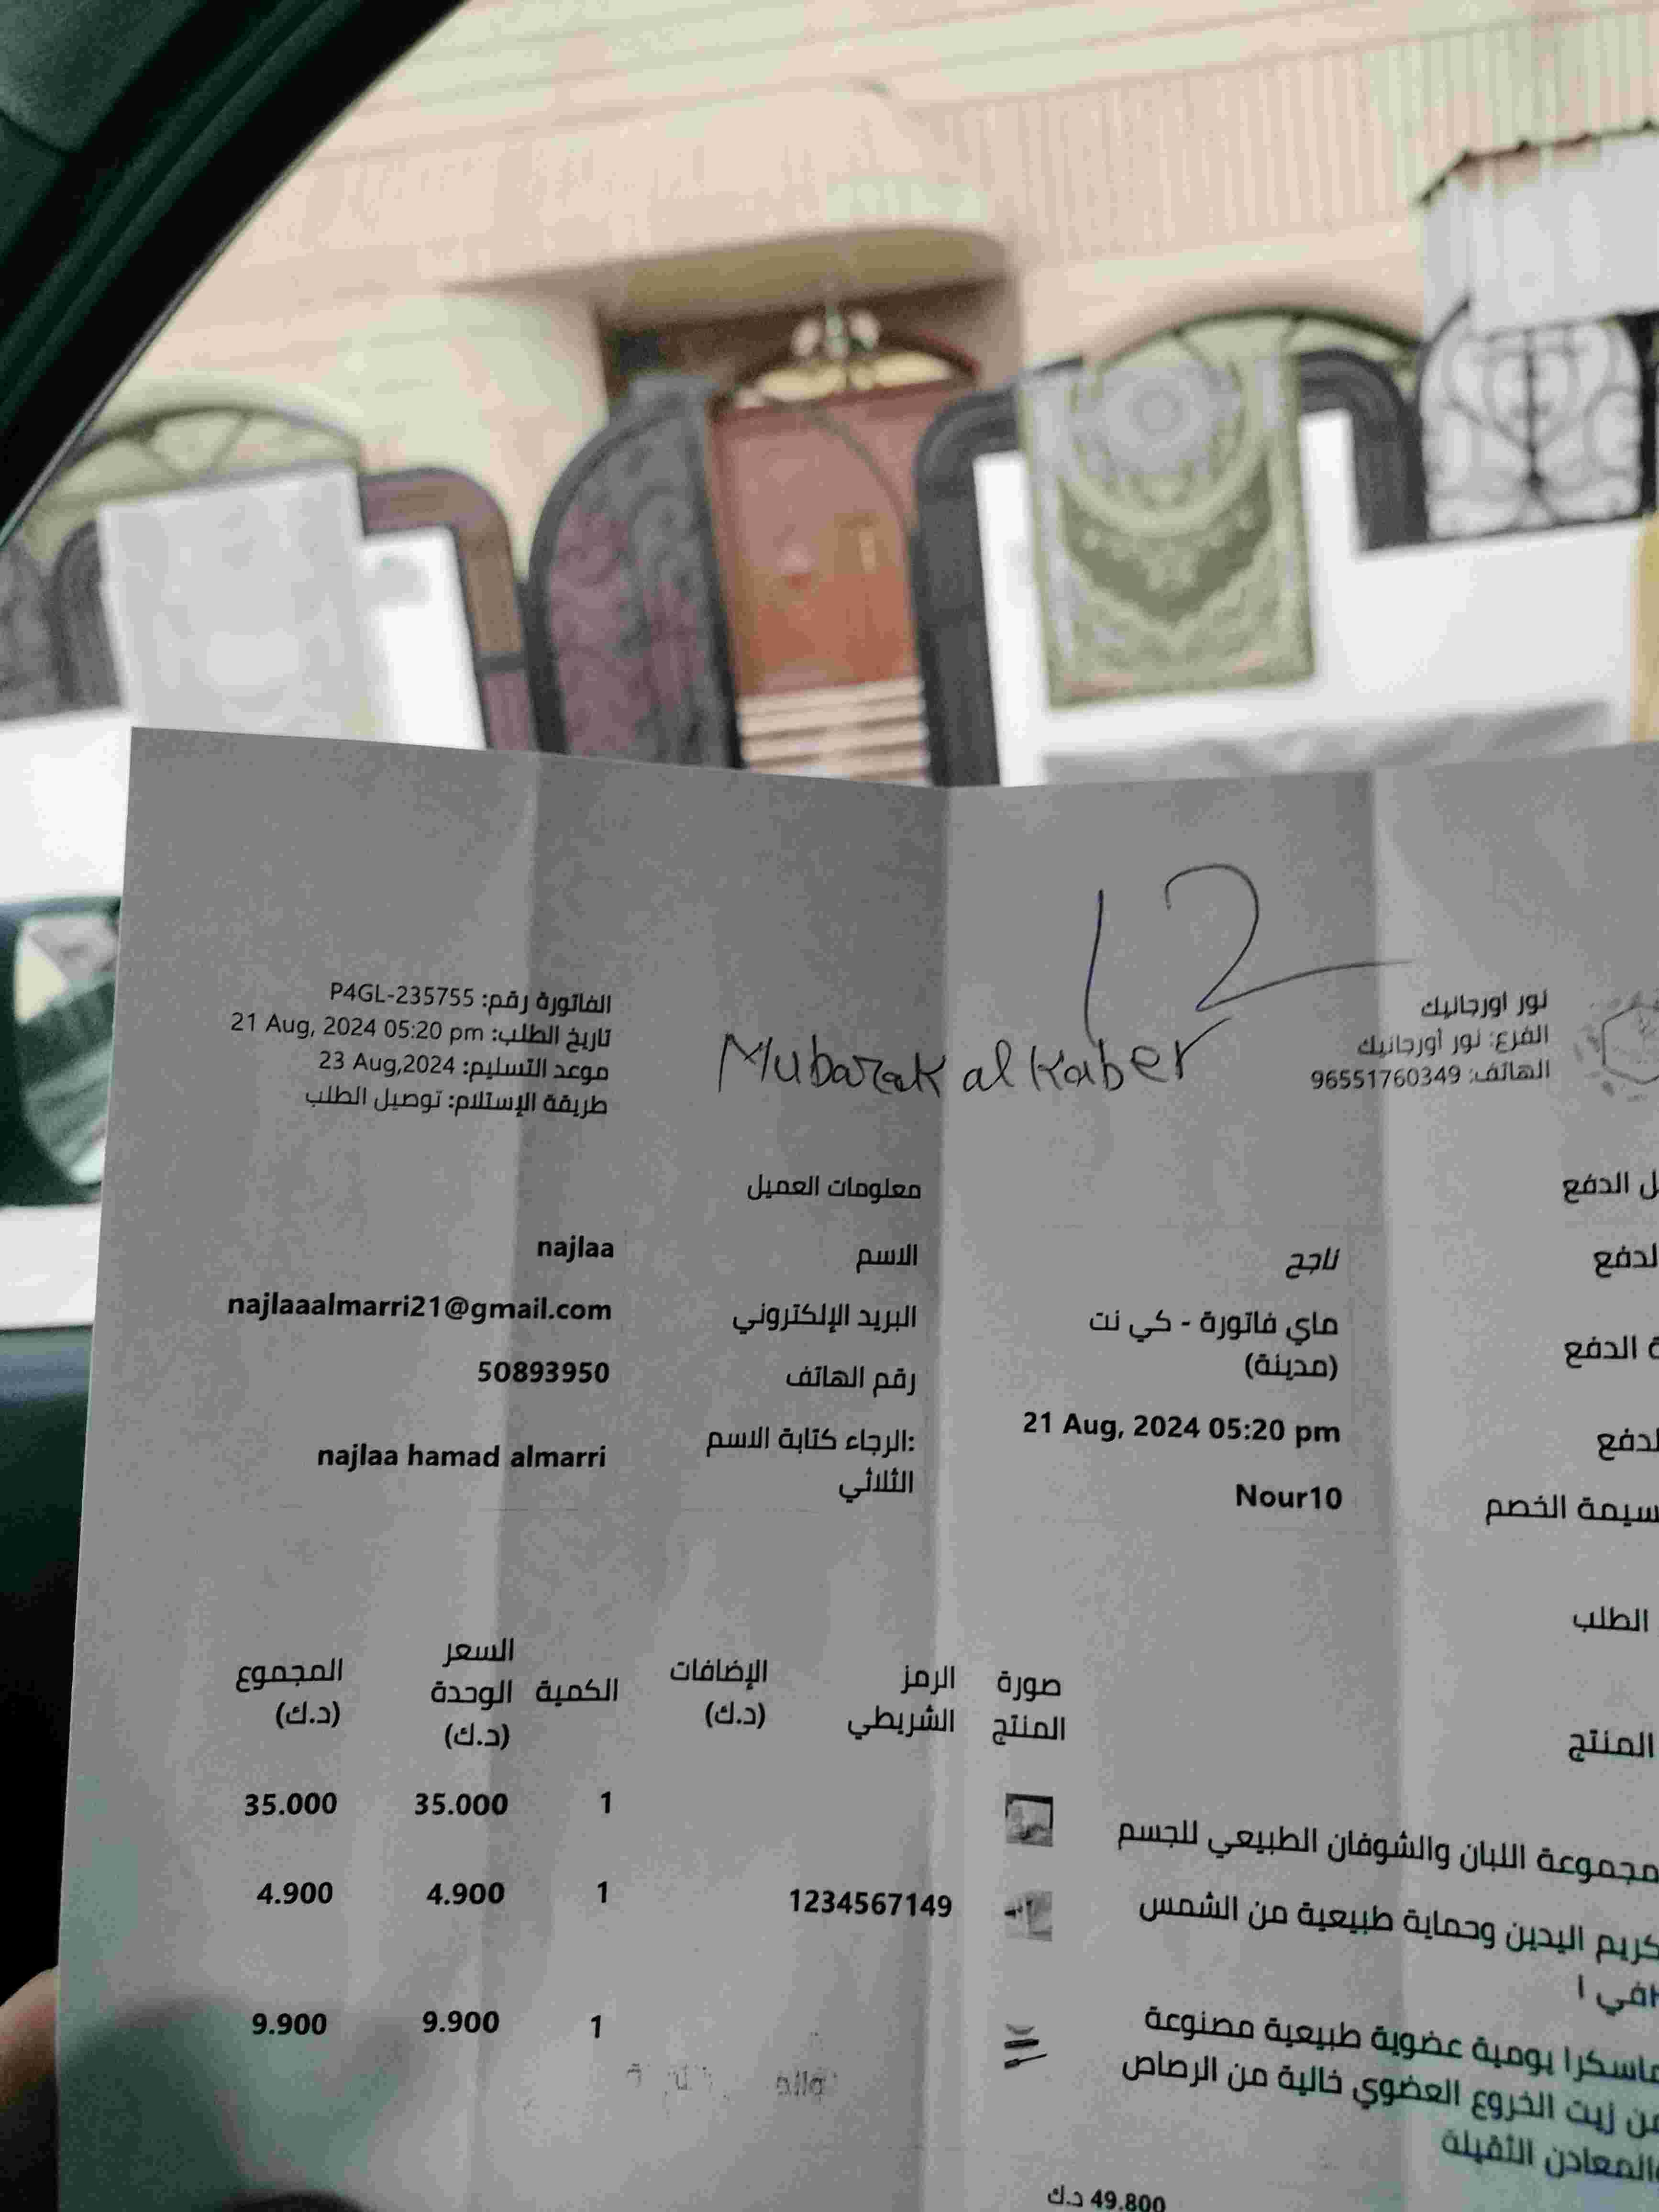 12
Mubarak al Kaber
نور اورجانيك
الفرع: نور أورجانيك
الهاتف: 96551760349
الفاتورة رقم: P4GL-235755
تاريخ الطلب: 21 Aug, 2024 05:20 pm
موعد التسليم: 23 Aug,2024
طريقة الإستلام: توصيل الطلب
الدفع
ناجح
ماي فاتورة - كي نت
(مدينة)
الدفع
21 Aug, 2024 05:20 pm
الخصم Nour10
معلومات العميل
الاسم najlaa
البريد الإلكتروني najlaaalmarri21@gmail.com
رقم الهاتف 50893950
:الرجاء كتابة الاسم najlaa hamad almarri
الثلاثي
الطلب
المنتج صورة المنتج الرمز الشريطي الإضافات (د.ك) الكمية السعر الوحدة (د.ك) المجموع (د.ك)
مجموعة اللبان والشوفان الطبيعي للجسم 1 35.000 35.000
كريم اليدين وحماية طبيعية من الشمس 1234567149 1 4.900 4.900
ماسكرا يومية عضوية طبيعية مصنوعة 1 9.900 9.900
من زيت الخروع العضوي خالية من الرصاص
والمعادن الثقيلة
49.800 د.ك